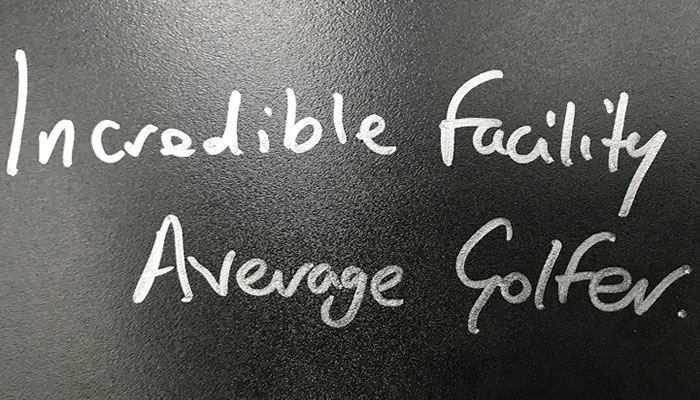 Incredible Facility
Average Golfer.